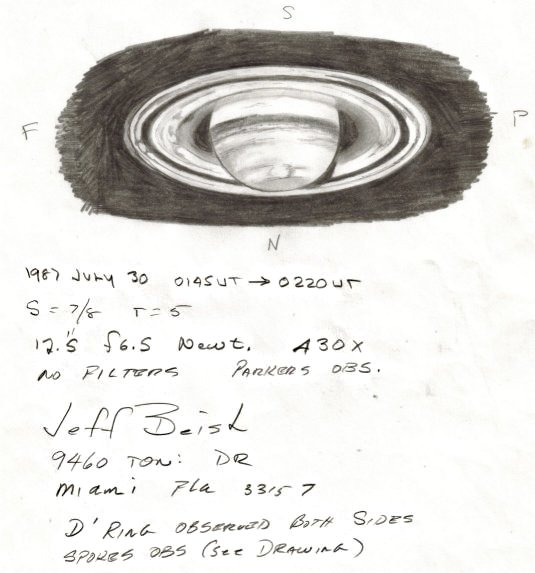 S
F
P
N
1987 JULY 30 0145UT → 0220UT
S = 7/8 T = 5
12.5" f6.5 Newt. 430X
NO FILTERS PARKERS OBS.
Jeff Beish
9460 TONI DR
Miami Fla 33157
D' RING OBSERVED BOTH SIDES
SPOKES OBS (See DRAWING)